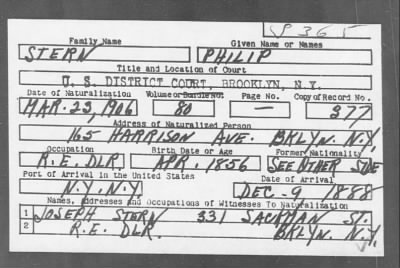 S 365
Family Name Given Name or Names
STERN PHILIP
Title and Location of Court
U. S. DISTRICT COURT, BROOKLYN, N.Y.
Date of Naturalization Volume or Bundle No. Page No. Copy of Record No.
MAR. 23, 1906 80 — 377
Address of Naturalized Person
165 HARRISON AVE. BKLYN. N.Y.
Occupation Birth Date or Age Former Nationality
R.E. DLR. APR. 1856 SEE OTHER SIDE
Port of Arrival in the United States Date of Arrival
N.Y. N.Y. DEC. 9, 1888
Names, Addresses and Occupations of Witnesses To Naturalization
1 JOSEPH STERN 331 SACKMAN ST.
2 R.E. DLR. BKLYN. N.Y.